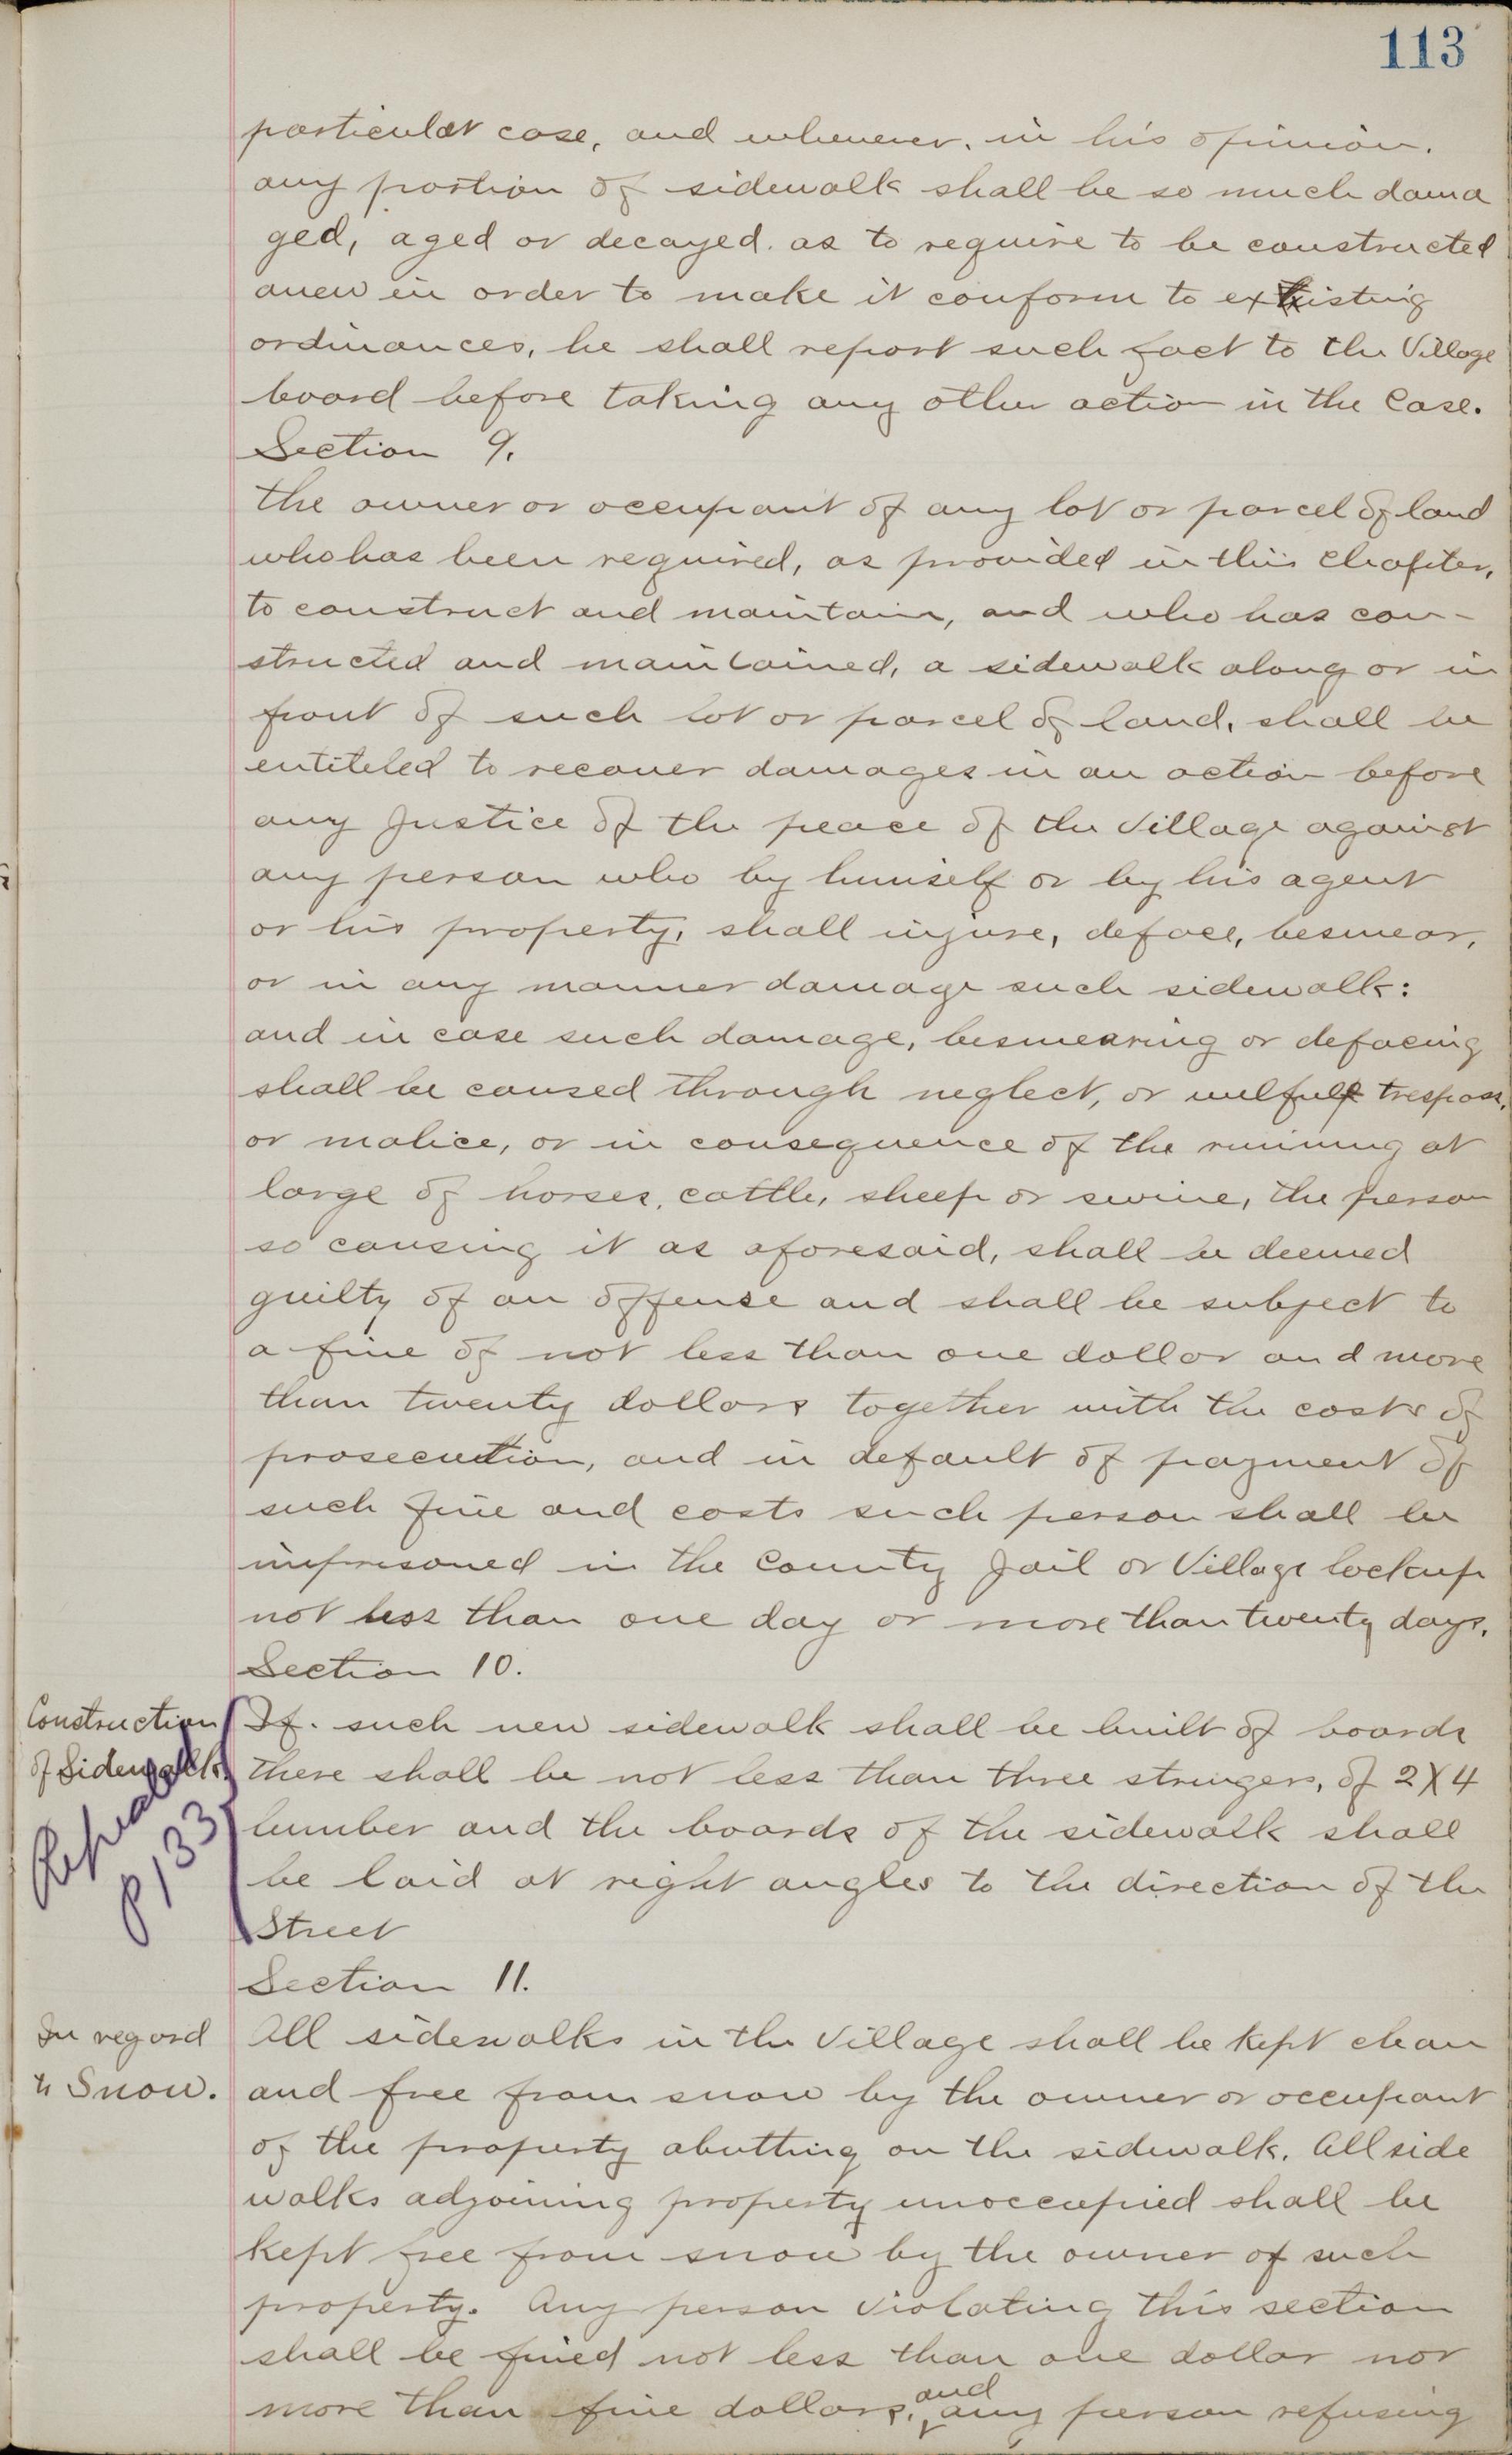 113
particular case, and whenever, in his opinion.
any portion of sidewalk shall be so much dama
ged, aged or decayed. as to require to be constructed
anew in order to make it conform to existing
ordinances, he shall report such fact to the Village
board before taking any other action in the Case.
Section 9.
the owner or occupant of any lot or parcel of land
who has been required, as provided in this chapter,
to construct and maintain, and who has con-
structed and maintained, a sidewalk along or in
front of such lot or parcel of land, shall be
entiteled to recover damages in an action before
any Justice of the peace of the Village against
any person who by himself or by his agent
or his property, shall injure, deface, besmear,
or in any manner damage such sidewalk:
and in case such damage, besmearing or defacing
shall be caused through neglect, or wilful trespass,
or malice, or in consequence of the running at
large of horses, cattle, sheep or swine, the person
so causing it as aforesaid, shall be deemed
guilty of an offense and shall be subject to
a fine of not less than one dollar and more
than twenty dollars together with the costs of
prosecution, and in default of payment of
such fine and costs such person shall be
imprisoned in the County Jail or Village lockup
not less than one day or more than twenty days.
Section 10.
Construction
of Sidewalk.
Repealed
P 133
If. such new sidewalk shall be built of boards
there shall be not less than three stringers, of 2X4
lumber and the boards of the sidewalk shall
be laid at right angles to the direction of the
Street
Section 11.
In regard
to Snow.
All sidewalks in the Village shall be kept clean
and free from snow by the owner or occupant
of the property abutting on the sidewalk. All side
walks adjoining property unoccupied shall be
kept free from snow by the owner of such
property. Any person violating this section
shall be fined not less than one dollar nor
more than five dollars, and any person refusing